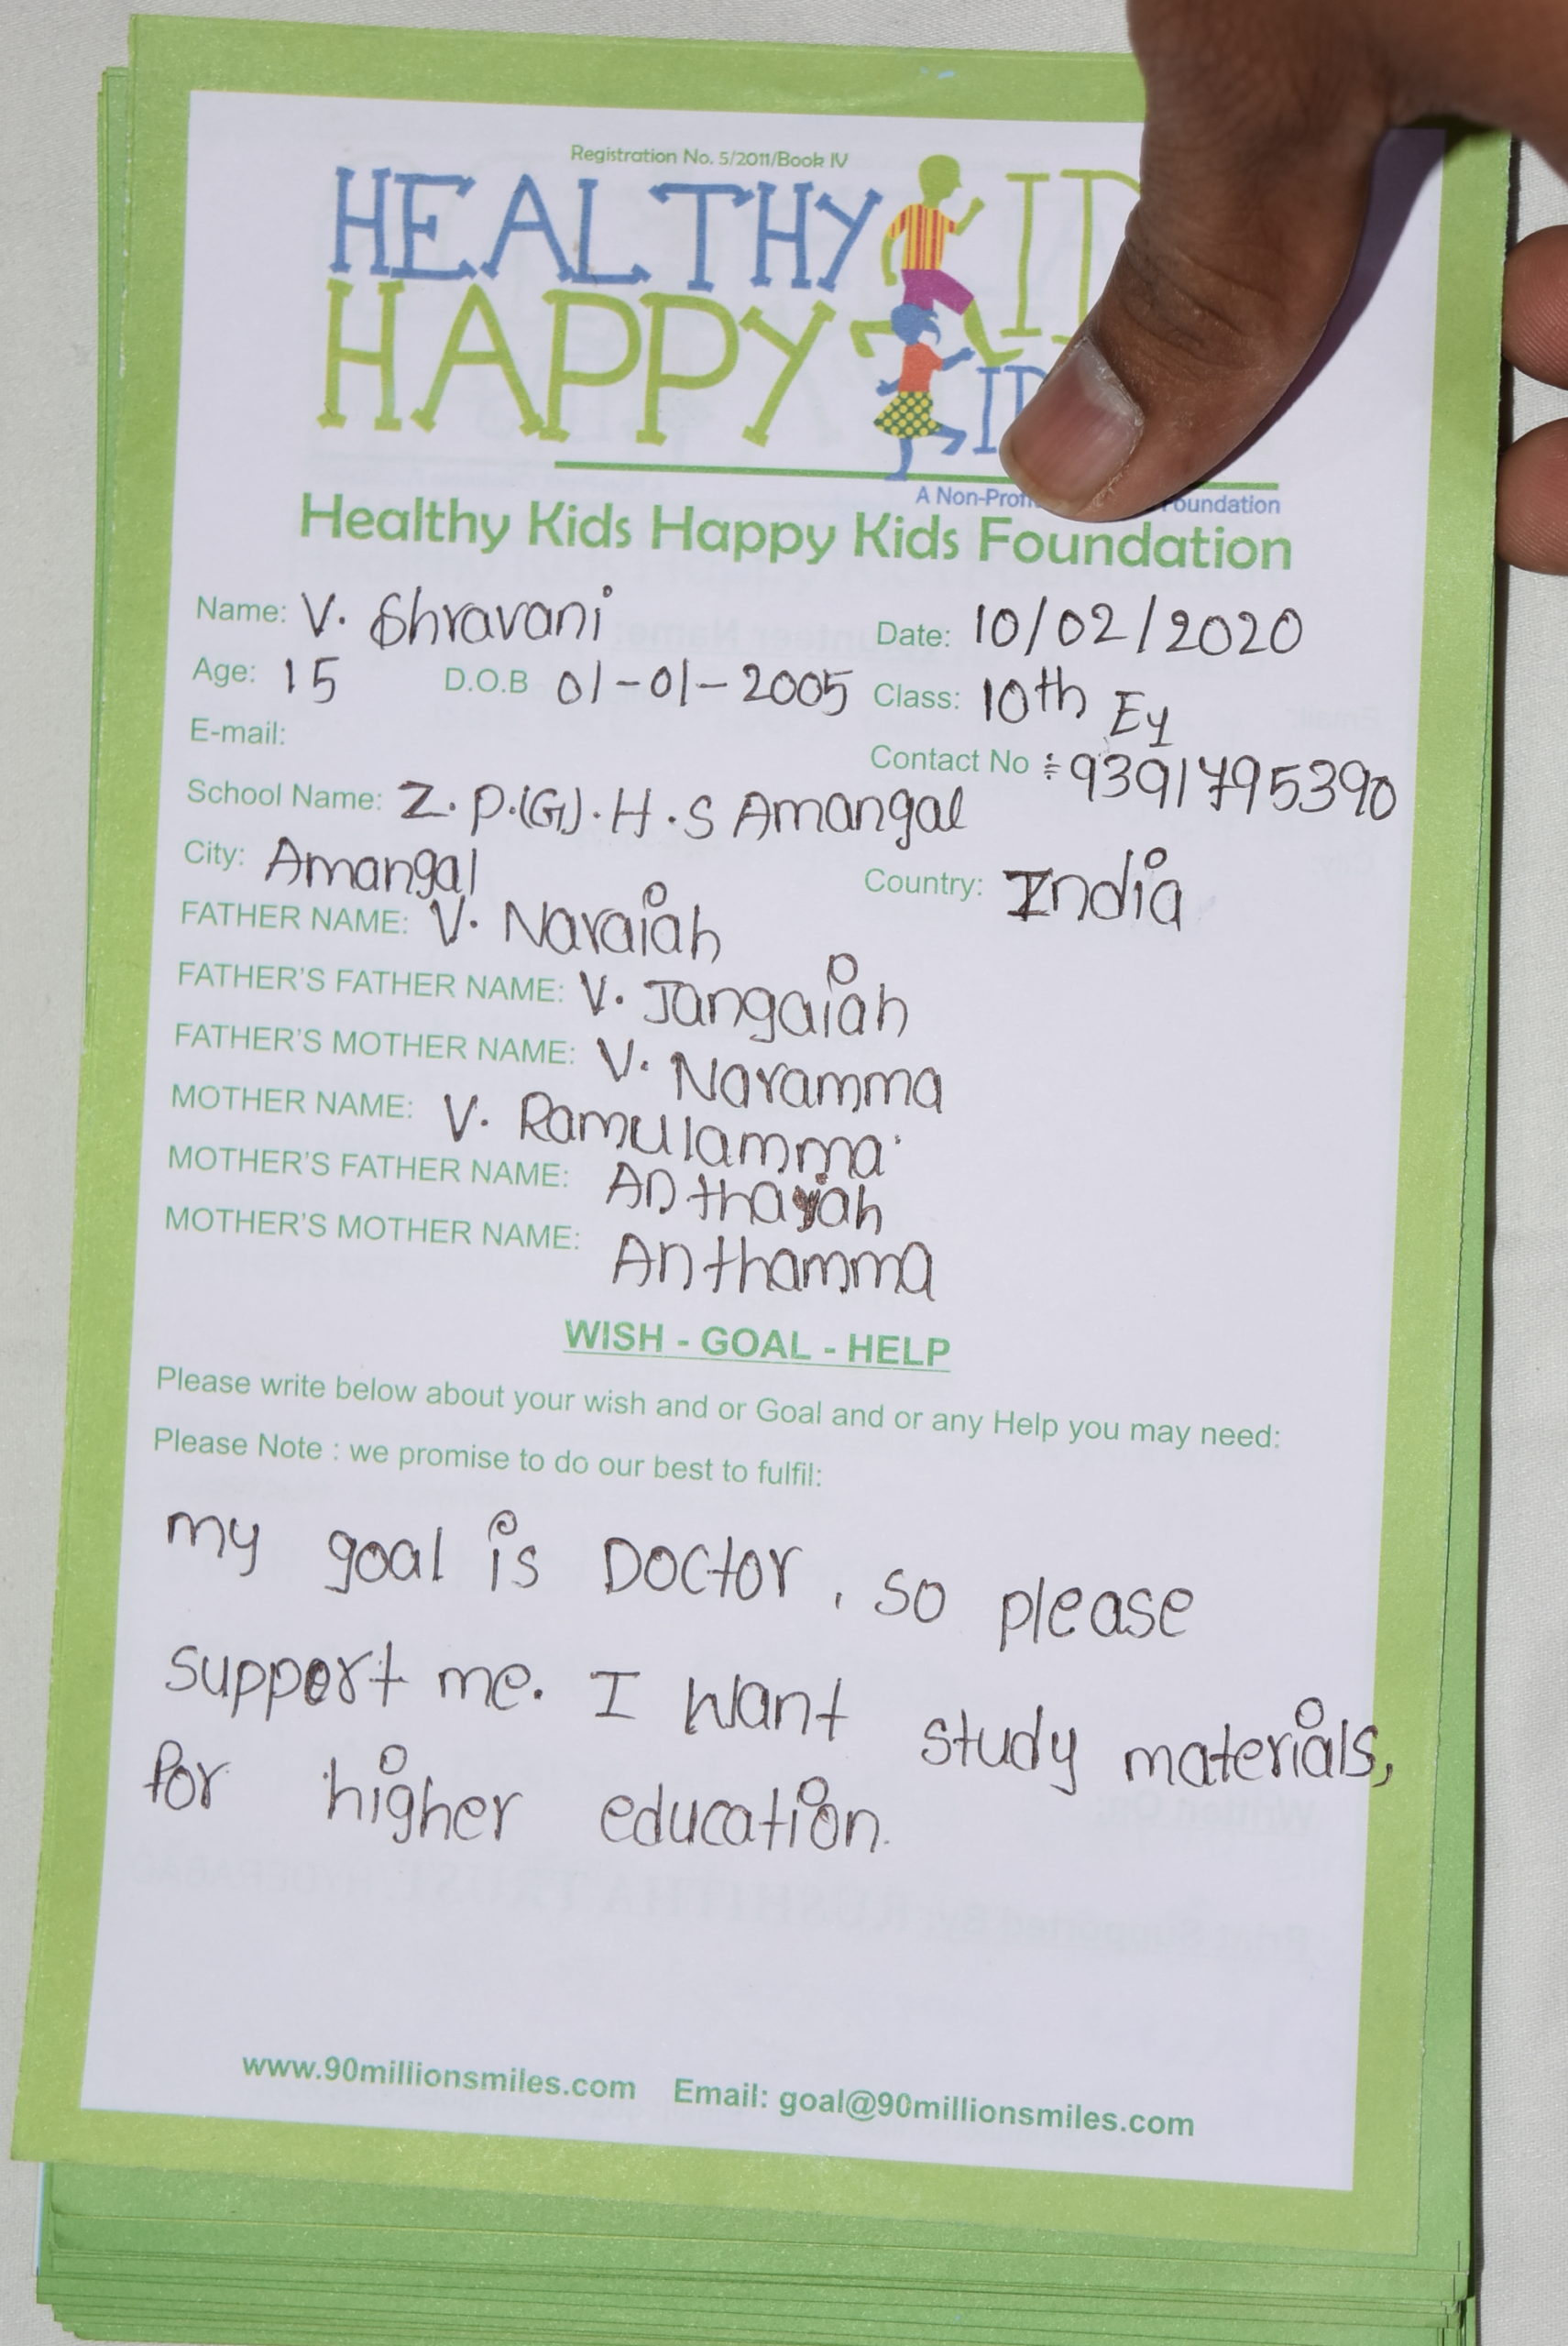 Registration No. 5/2011/Book IV
HEALTHY
HAPPY
A Non-Profit Foundation
Healthy Kids Happy Kids Foundation
Name: V. Shravani Date: 10/02/2020
Age: 15 D.O.B 01-01-2005 Class: 10th EY
E-mail: Contact No : 9391795390
School Name: Z.P.(G).H.S Amangal
City: Amangal Country: India
FATHER NAME: V. Naraiah
FATHER'S FATHER NAME: V. Jangaiah
FATHER'S MOTHER NAME: V. Naramma
MOTHER NAME: V. Ramulamma
MOTHER'S FATHER NAME: Anthaiah
MOTHER'S MOTHER NAME: Anthamma
WISH - GOAL - HELP
Please write below about your wish and or Goal and or any Help you may need:
Please Note : we promise to do our best to fulfil:
my goal is Doctor, so please
support me. I want study materials,
for higher education.
www.90millionsmiles.com Email: goal@90millionsmiles.com